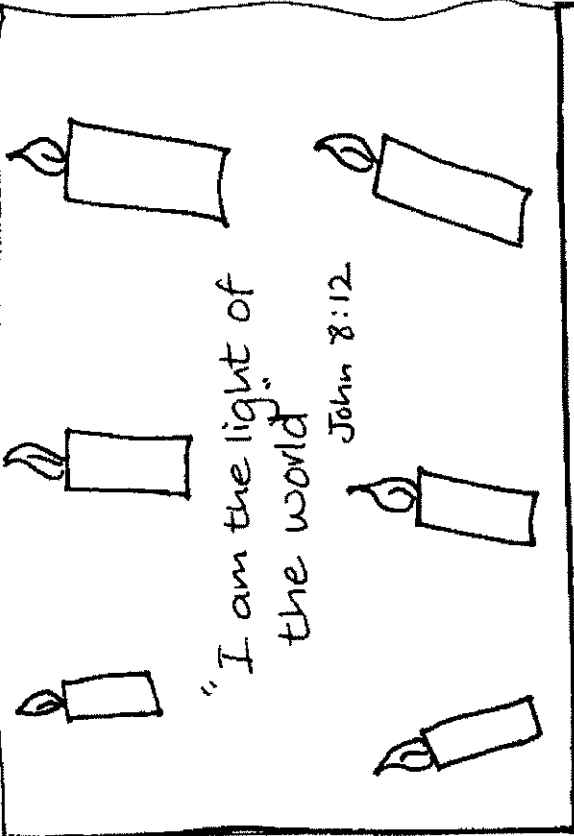 "I am the light of
the world."
John 8:12